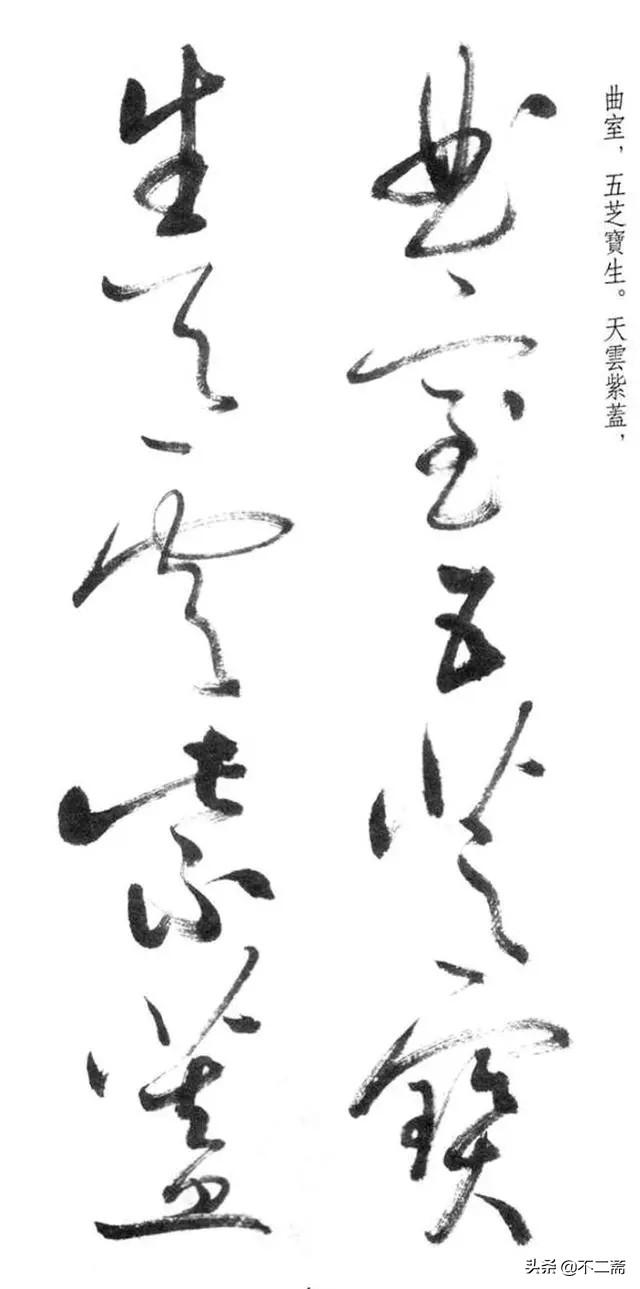 曲室，五芝寶生。天雲紫蓋，
曲室五芝寶
生天雲紫蓋
头条 @不二斋